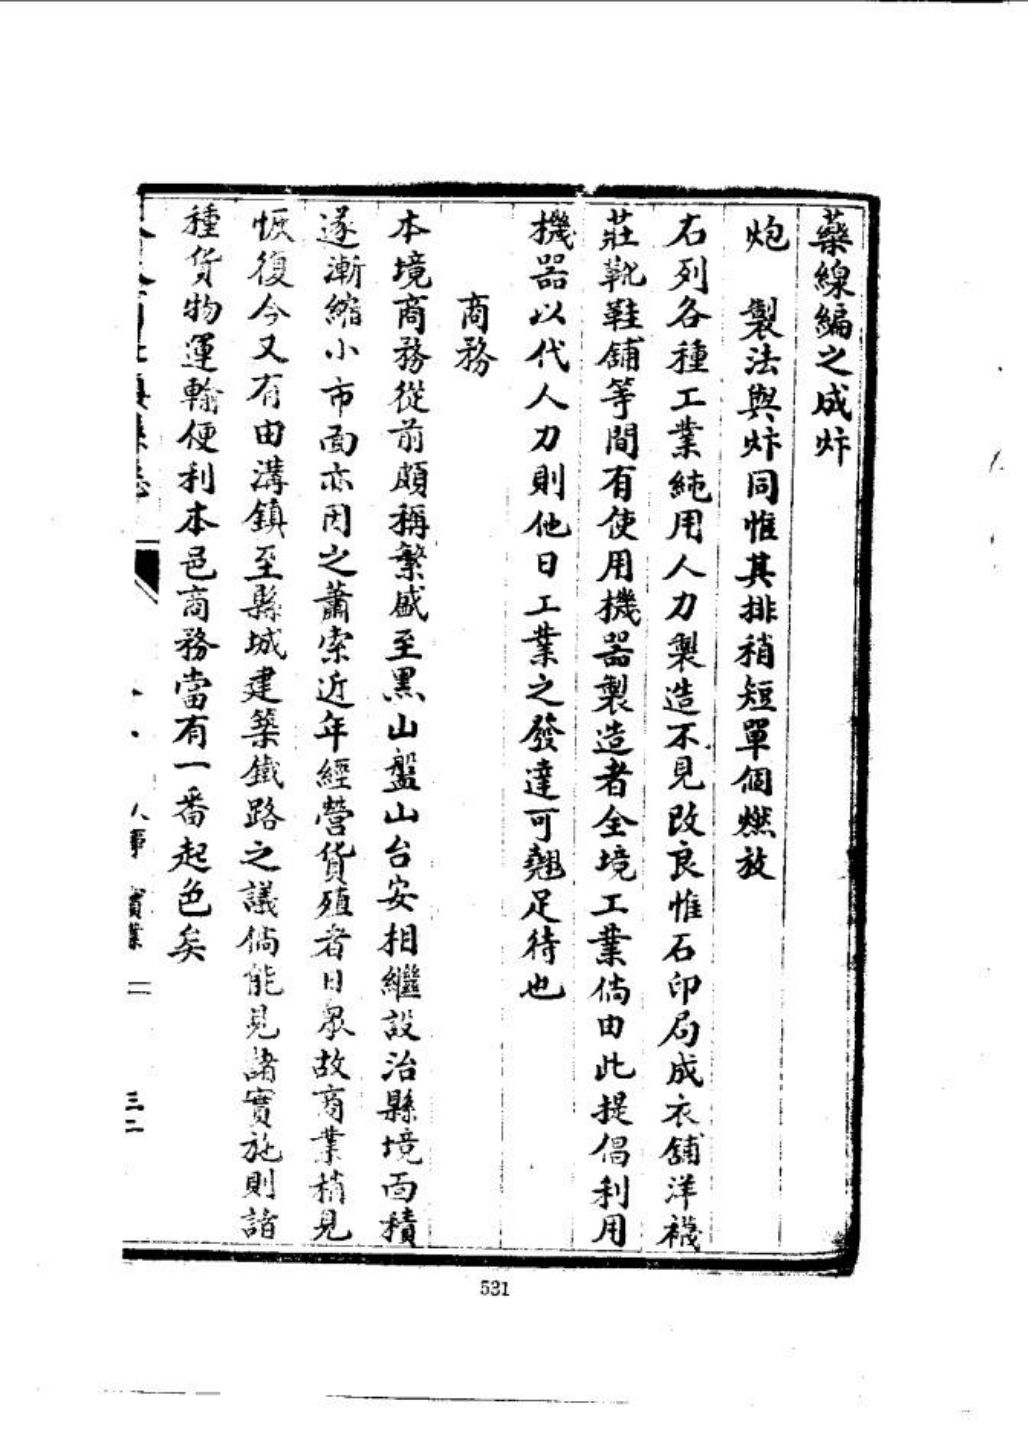 藥線編之成炸
炮　製法與炸同惟其排稍短單個燃放
右列各種工業純用人力製造不見改良惟石印局成衣舖洋襪
莊靴鞋舖等間有使用機器製造者全境工業倘由此提倡利用
機器以代人力則他日工業之發達可翹足待也
商務
本境商務從前頗稱繁盛至黑山盤山台安相繼設治縣境面積
遂漸縮小市面亦因之蕭索近年經營貨殖者日衆故商業稍見
恢復今又有由溝鎮至縣城建築鐵路之議倘能見諸實施則諸
種貨物運輸便利本邑商務當有一番起色矣
人事　實業　二
三二
531